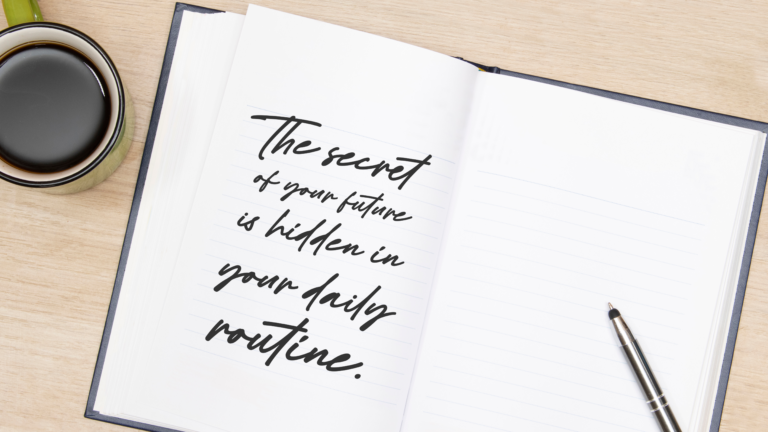 The secret
of your future
is hidden in
your daily
routine.